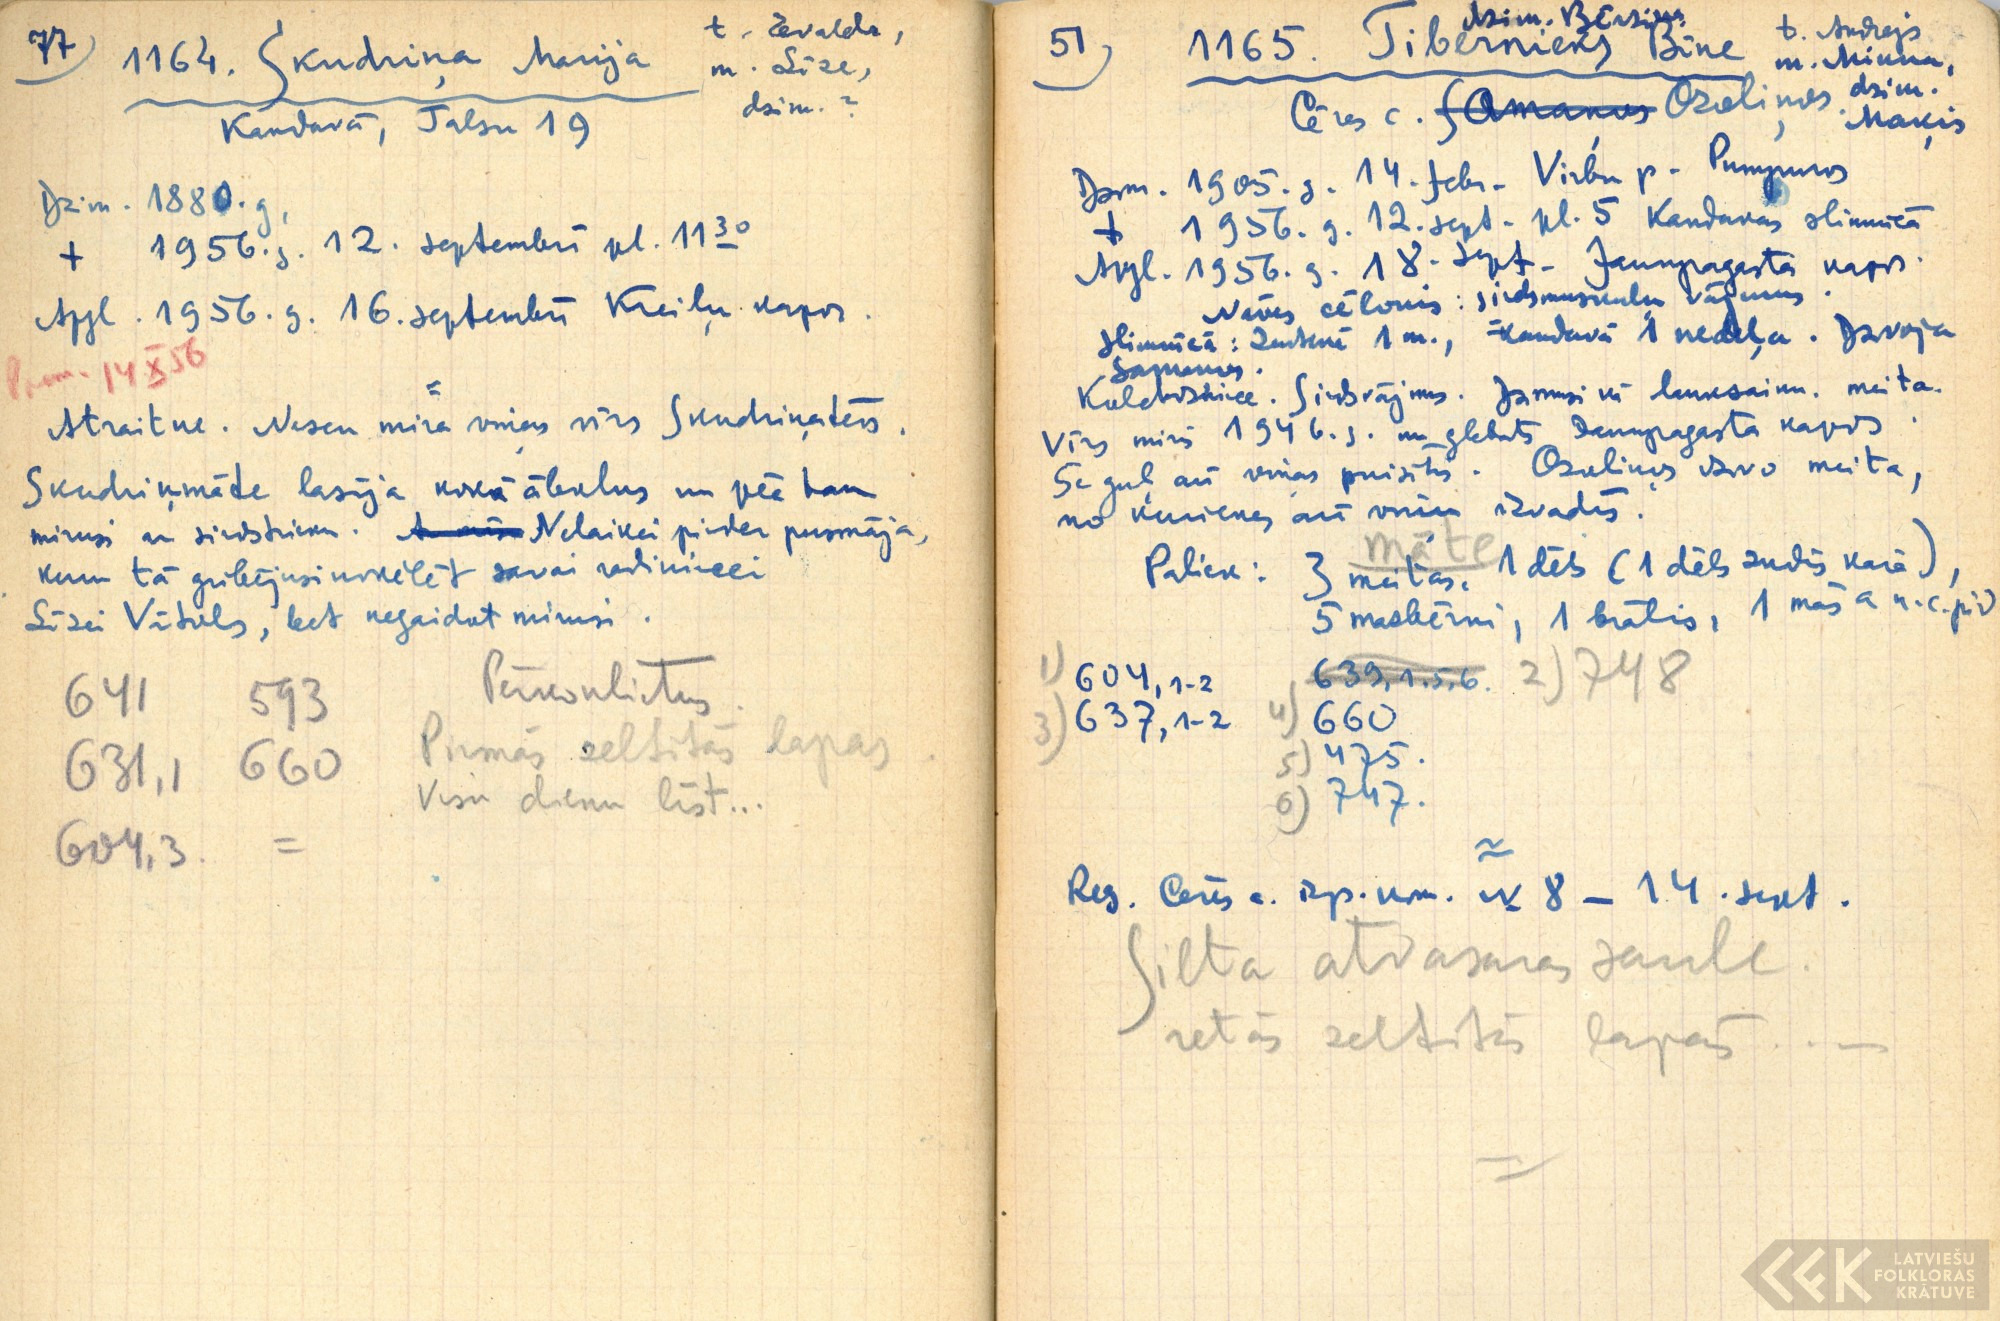 77)
1164. Skudriņa Marija
t. Ževalds,
m. Līze,
dzim. ?
Kandavā, Talsu 19
Dzim. 1880. g,
+ 1956. g. 12. septembrī pl. 11 30
Apgl. 1956. g. 16. septembrī Kreiļu kapos.
14 X 56
Atraitne. Nesen mira viņas vīrs Skudriņatēvs.
Skudriņmāte lasīja kokā ābolus un pēc tam
mirusi ar sirdstrieku. Nelaiķei pieder pusmāja,
kuru tā gribējusi novēlēt savai radiniecei
Līzei Vītols, bet negaidot mirusi.
641 593 Pērkonlietus.
631,1 660 Pirmās zeltītās lapas.
Visu dienu līst...
604,3. =
51)
dzim. Bērziņa
1165. Tibernieks Bīne
t. Andrejs
m. Minna,
dzim.
Maķis
Cēres c. Amaņos Ozoliņos.
Dzim. 1905. g. 14. febr. Virbu p. Pumpuros
+ 1956. g. 12. sept. pl. 5 Kandavas slimnīcā
Apgl. 1956. g. 18. sept. Jaunpagasta kapos.
Nāves cēlonis: sirdsmuskuļu vājums.
Slimnīcā: 1 m., Kandavā 1 nedēļa. Dzīvoja
Kolchozniece. Sirdsvājums. Dzimusi kā lauksaimn. meita.
Vīrs miris 1946. g. un glabāts Jaunpagasta kapos.
Se guļ arī viņas puisītis. Ozoliņos dzīvo meita,
no kurienes arī viņu izvadīs.
māte
Paliek: 3 meitas, 1 dēls (1 dēls zudis karā),
5 mazbērni, 1 brālis, 1 māsa u.c. pied
1) 604,1-2 639,1.5.6. 2) 748
3) 637,1-2 4) 660
5) 475.
6) 747.
≈
Reg. Cēres c. izp. kom. № 8 – 14. sept.
Silta atvasaras saule.
retās zeltītās lapās...—
=
LATVIEŠU
FOLKLORAS
KRĀTUVE